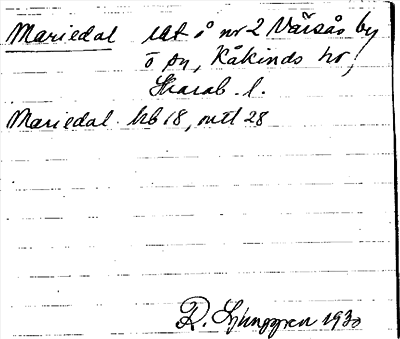 Mariedal lät å nr 2 Värsås by
ö sn, Kåkinds hd,
Skarab. l.
Mariedal hb 18, mtl 28
R. Ljunggren 1930